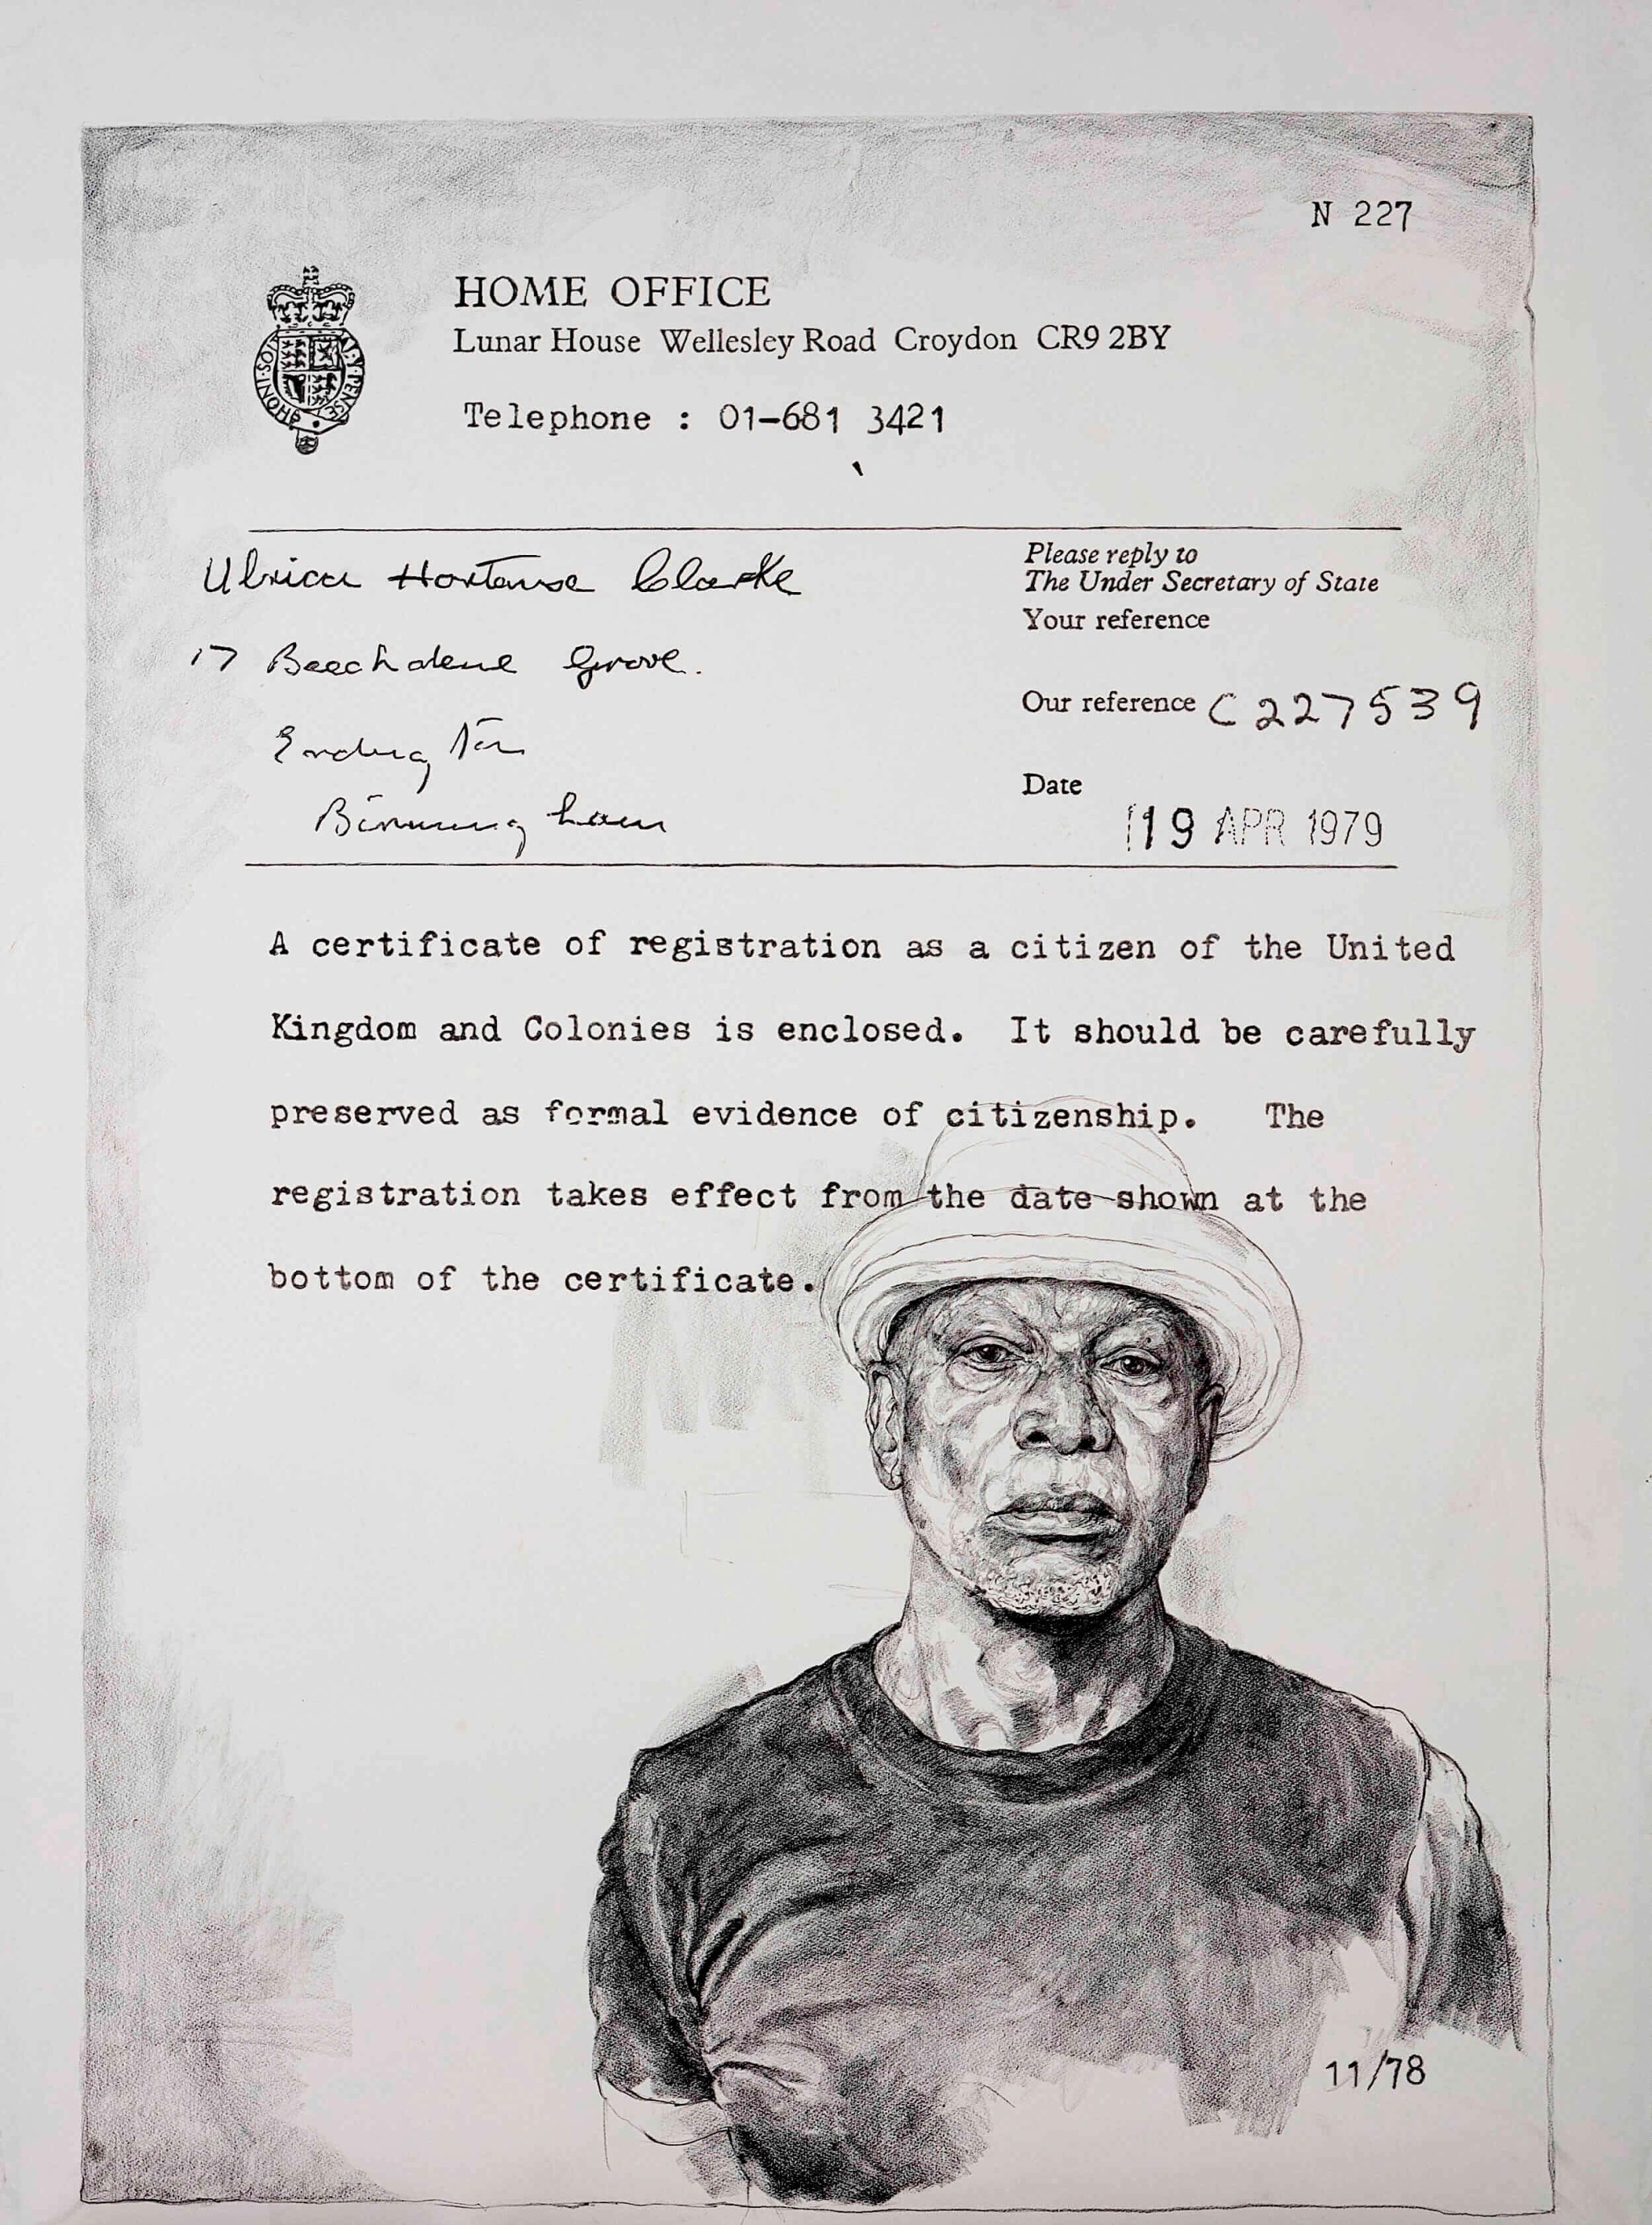 N 227
HOME OFFICE
Lunar House Wellesley Road Croydon CR9 2BY
Telephone : 01-681 3421
HONI·SOI
Ulrica Hortense Clarke
17 Beechdene Grove.
Erdington
Birmingham
Please reply to
The Under Secretary of State
Your reference
Our reference C227539
Date
19 APR 1979
A certificate of registration as a citizen of the United
Kingdom and Colonies is enclosed. It should be carefully
preserved as formal evidence of citizenship. The
registration takes effect from the date shown at the
bottom of the certificate.
11/78